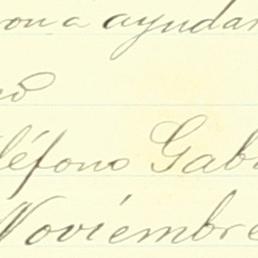 ona ayudar
no
léfono Gab
Noviembre